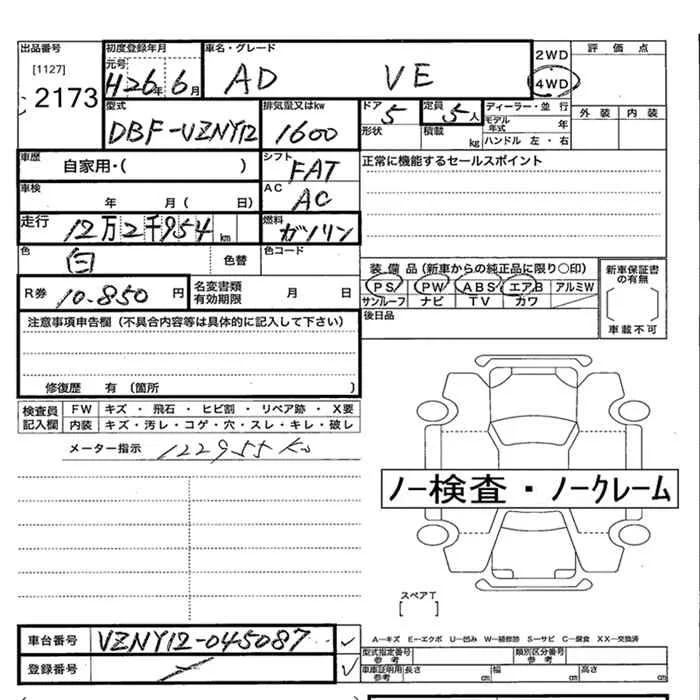 出品番号 初度登録年月 車名・グレード 2WD 評価点
[1127] 元号 4WD
2173 H26年6月 AD VE 外装 内装
型式 排気量又はkw ドア 5 定員 5人 ディーラー・並行
DBF-VZNY12 1600 形状 積載 kg モデル年式 年
ハンドル 左・右
車歴 自家用・( ) シフト FAT 正常に機能するセールスポイント
車検 年 月( 日) AC AC
走行 12万2千954km 燃料 ガソリン
色 白 色替 色コード
装備品(新車からの純正品に限り○印) 新車保証書の有無
R券 10.850円 名変書類有効期限 月 日 PS PW ABS エアB アルミW
サンルーフ ナビ TV カワ
車載不可
注意事項申告欄(不具合内容等は具体的に記入して下さい) 後日品
修復歴 有(箇所 )
検査員記入欄 FW キズ・飛石・ヒビ割・リペア跡・X要
内装 キズ・汚レ・コゲ・穴・スレ・キレ・破レ
メーター指示 122955Km
ノー検査・ノークレーム
スペアT
[ ]
車台番号 VZNY12-045087
A―キズ E―エクボ U―凹み W―補修跡 S―サビ C―腐食 XX―交換済
登録番号
型式指定番号 参考 類別区分番号 参考
車庫証明用参考 長さ cm 幅 cm 高さ cm